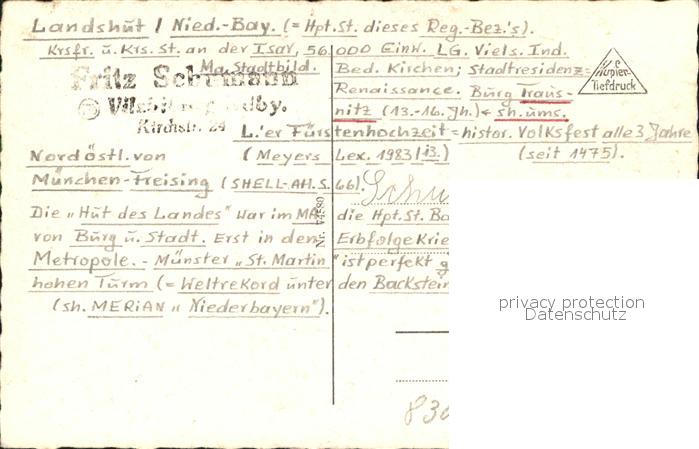 Landshut / Nied.-Bay. (= Hpt.St. dieses Reg.-Bez.'s).
Krsfr. u. Krs.St. an der Isar, 56.000 Einw. LG. Viels. Ind.
Ma. Stadtbild. Bed. Kirchen; Stadtresidenz=
Renaissance. Burg Traus-
nitz (13.-16. Jh.) ← sh. ums.
Fritz Schumann
Vilsbiburg Ndby.
Kirchstr. 24
L.'er Fürstenhochzeit = histor. Volksfest alle 3 Jahre
(Meyers Lex. 1983/13.) (seit 1475).
Nordöstl. von
München-Freising (SHELL-Atl. S. 66).
Die „Hut des Landes" war im MA die Hpt.St. Ba
von Burg u. Stadt. Erst in dem Erbfolgekrie
Metropole. - Münster „St. Martin" ist perfekt g
hohen Turm (= Weltrekord unter den Backstein
(sh. MERIAN „Niederbayern").
Kupfer-
Tiefdruck
Schu
830
privacy protection
Datenschutz